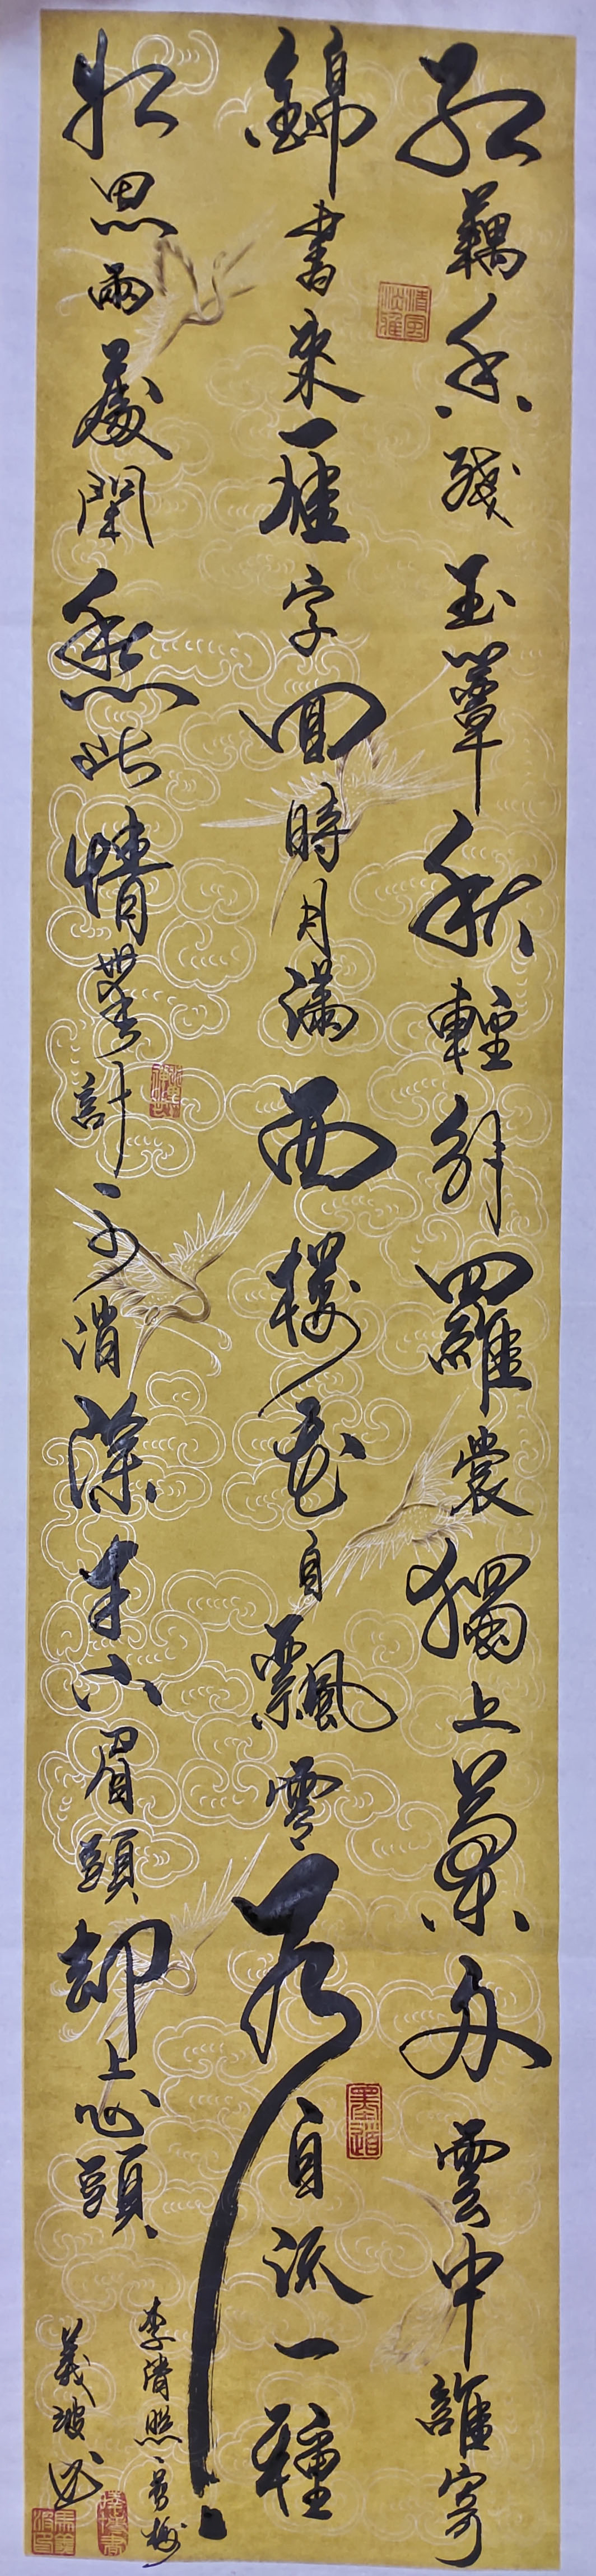 紅藕香殘玉簟秋輕解羅裳獨上蘭舟雲中誰寄
錦書來雁字回時月滿西樓花自飄零水自流一種
相思兩處閑愁此情無計可消除才下眉頭卻上心頭
李清照一剪梅
義波书
墨道